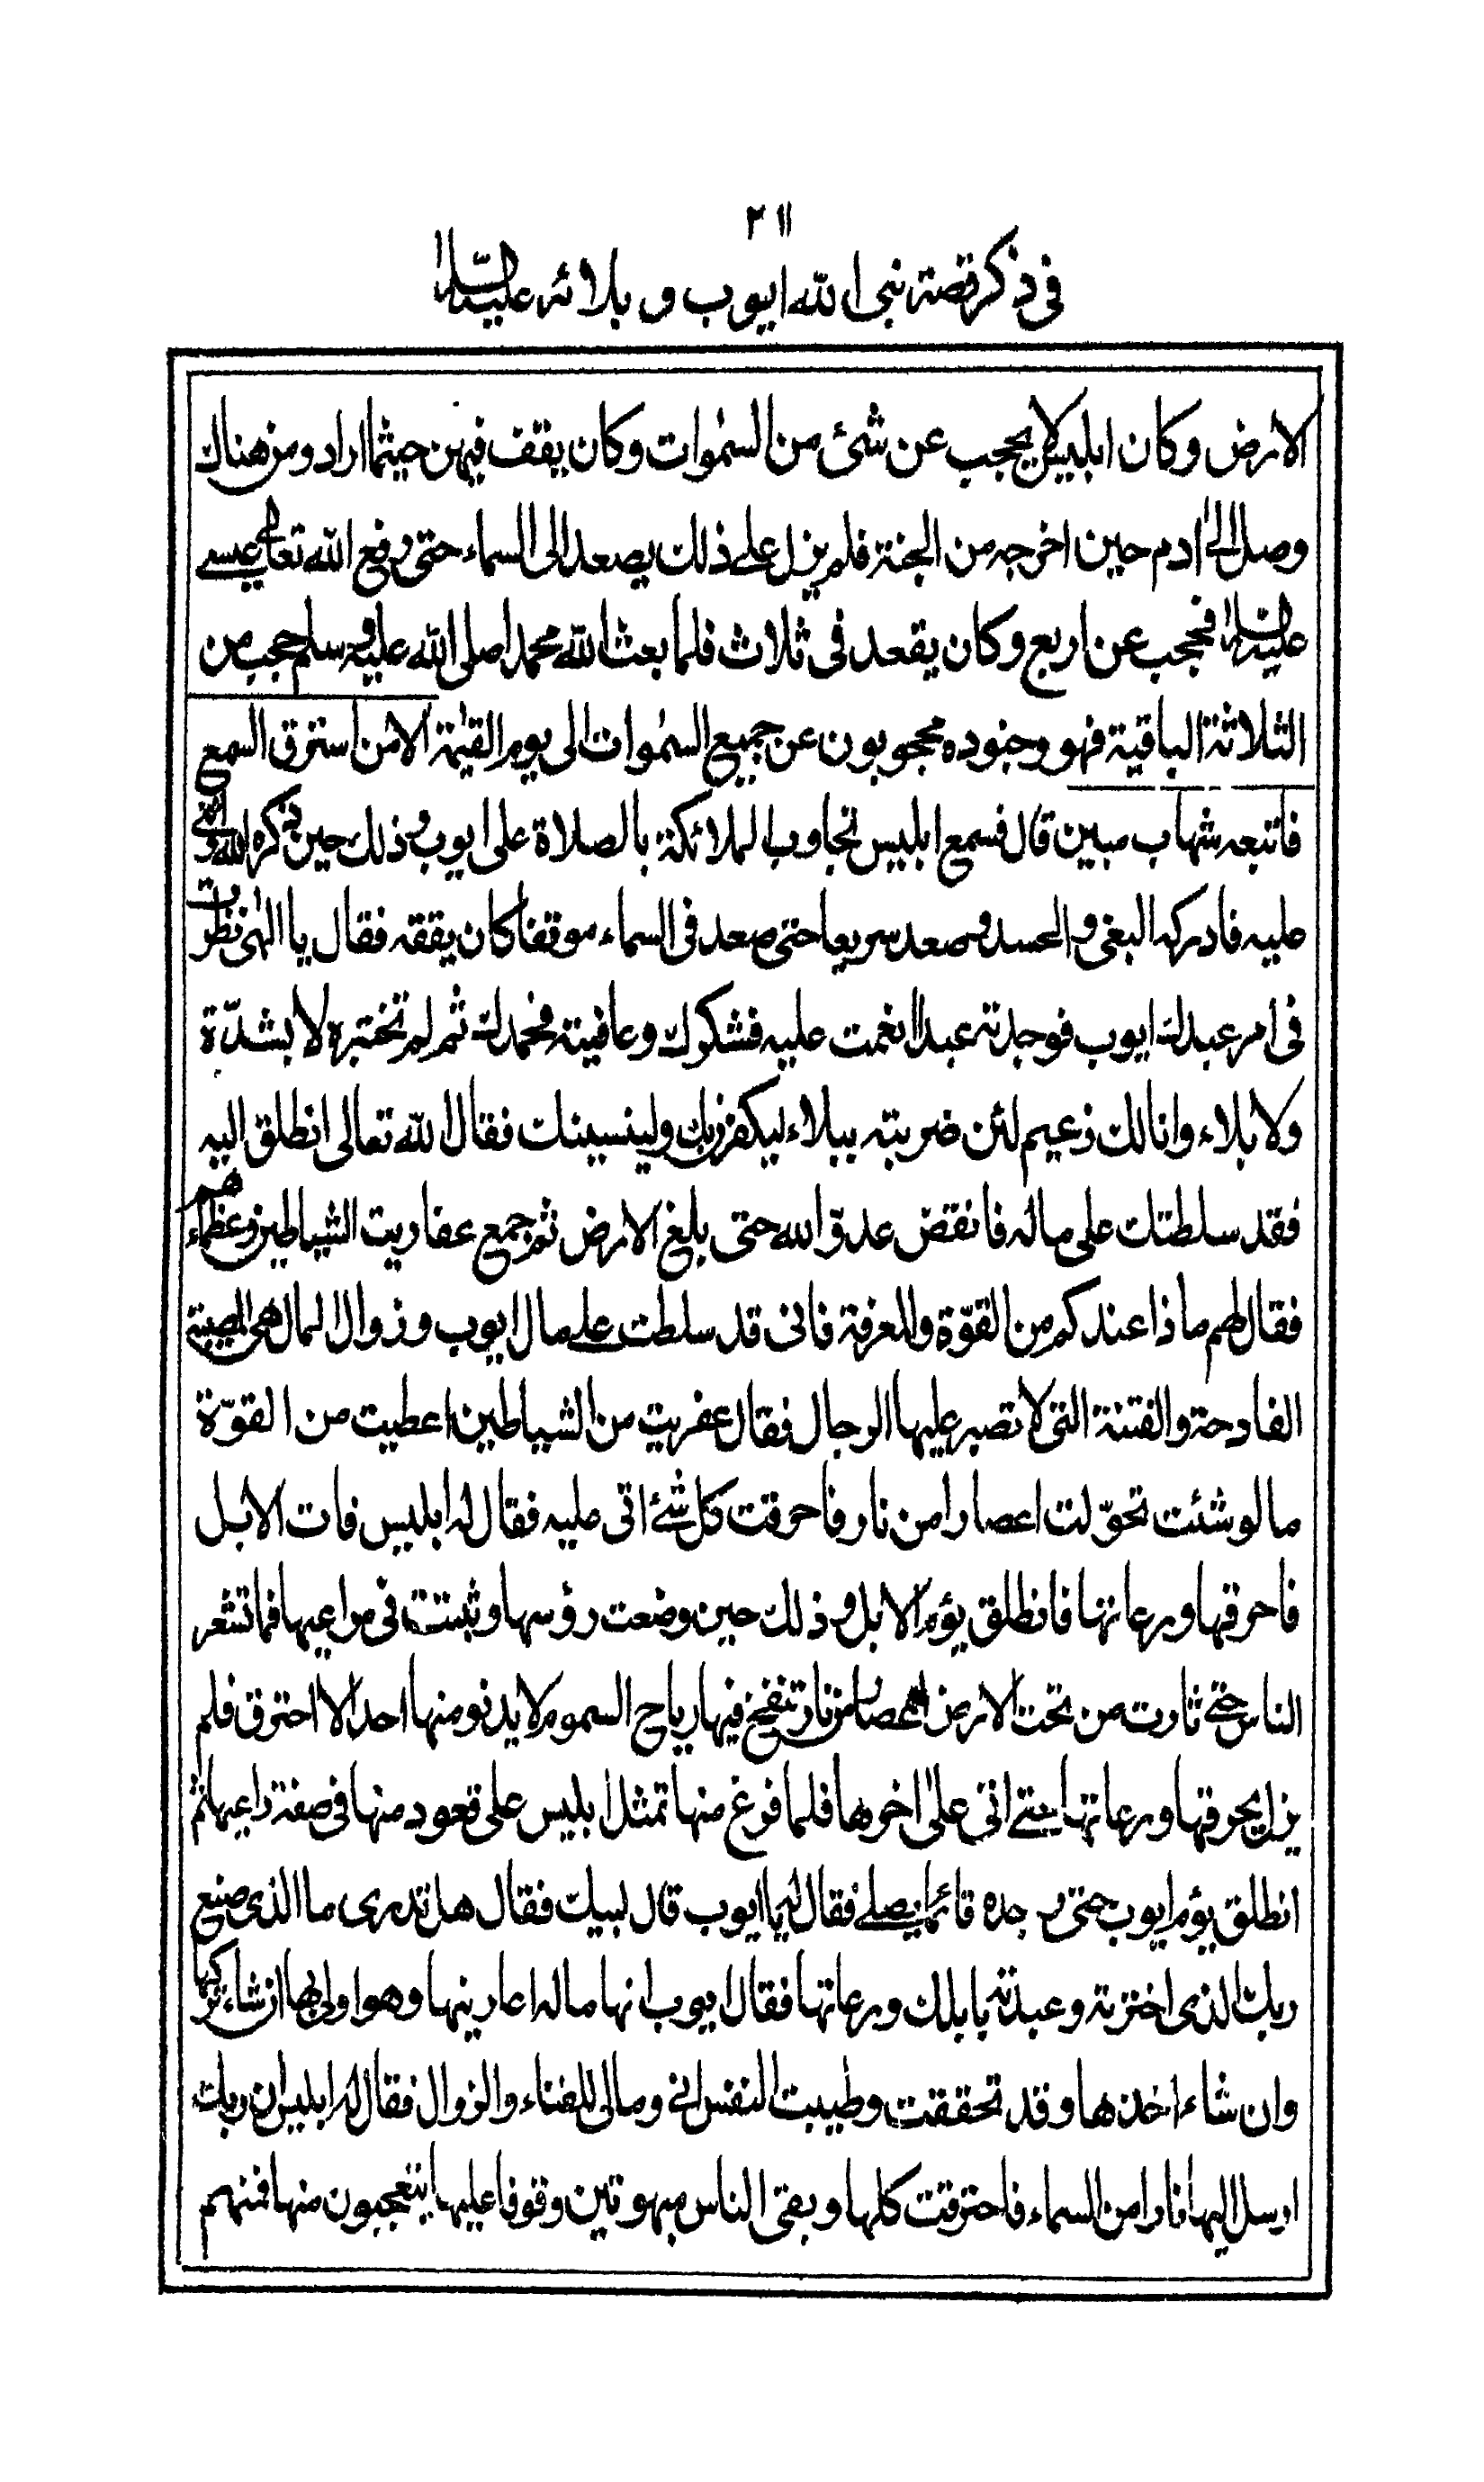 ٢١١
في ذكر قصة نبي الله ايوب و بلائه عليه السلام
الارض وكان ابليس لا يحجب عن شئ من السمٰوات وكان يقف فيهن حيثما اراد ومن هناك
وصل الىٰ ادم حين اخرجه من الجنة فلم يزل على ذلك يصعد الى السماء حتى رفع الله تعالى عيسى
عليه السلام فحجب عن اربع وكان يقعد فى ثلاث فلما بعث الله محمدا صلى الله عليه وسلم حجب من
الثلاثة الباقية فهو وجنوده محجوبون عن جميع السمٰوات الى يوم القيٰمة الا من استرق السمع
فاتبعه شهاب مبين قال فسمع ابليس تجاوب الملائكة بالصلاة على ايوب وذلك حين ذكره الله واثنى
عليه فادركه البغى والحسد وصعد سريعا حتى صعد فى السماء موقفا كان يقفه فقال يا الٰهى نظرت
فى امر عبدك ايوب فوجدته عبدا انعمت عليه فشكرك وعافيته فحمدك ثم لم تختبره لا بشدّة
ولا بلاء وانا لك زعيم لئن ضربته ببلاء ليكفرن بك ولينسينك فقال الله تعالى انطلق اليه
فقد سلطتك على ماله فانقضّ عدوّ الله حتى بلغ الارض ثم جمع عفاريت الشياطين وعظماءهم
فقال لهم ماذا عندكم من القوّة والمعرفة فانى قد سلطت على مال ايوب وزوال المال هى المصيبة
الفادحة والفتنة التى لا تصبر عليها الرجال فقال عفريت من الشياطين اعطيت من القوّة
ما لو شئت تحوّلت اعصارا من نار فاحرقت كل شئ اتى عليه فقال له ابليس فات الابل
فاحرقها ورعاتها فانطلق يؤم الابل وذلك حين وضعت رؤسها وثبتت فى مراعيها فما تشعر
الناس حتى ثارت من تحت الارض اعصار من نار تنفخ فيها رياح السموم لا يدنو منها احد الا احترق فلم
يزل يحرقها ورعاتها حتى اتى علىٰ اخرها فلما فرغ منها تمثل ابليس على قعود منها فى صفة راعيها ثم
انطلق يؤم ايوب حتى وجده قائما يصلى فقال له يا ايوب قال لبيك فقال هل تدرى ما الذى صنع
ربك الذى اخترته وعبدته بابلك ورعاتها فقال ايوب انها ماله اعارينها وهو اولى بها ان شاء تركها
وان شاء اخذها وقد تحققت وطيبت النفس انى ومالى للفناء والزوال فقال له ابليس ان ربك
ارسل اليها نارا من السماء فاحترقت كلها وبقى الناس مبهوتين وقوفا عليها يتعجبون منها فمنهم